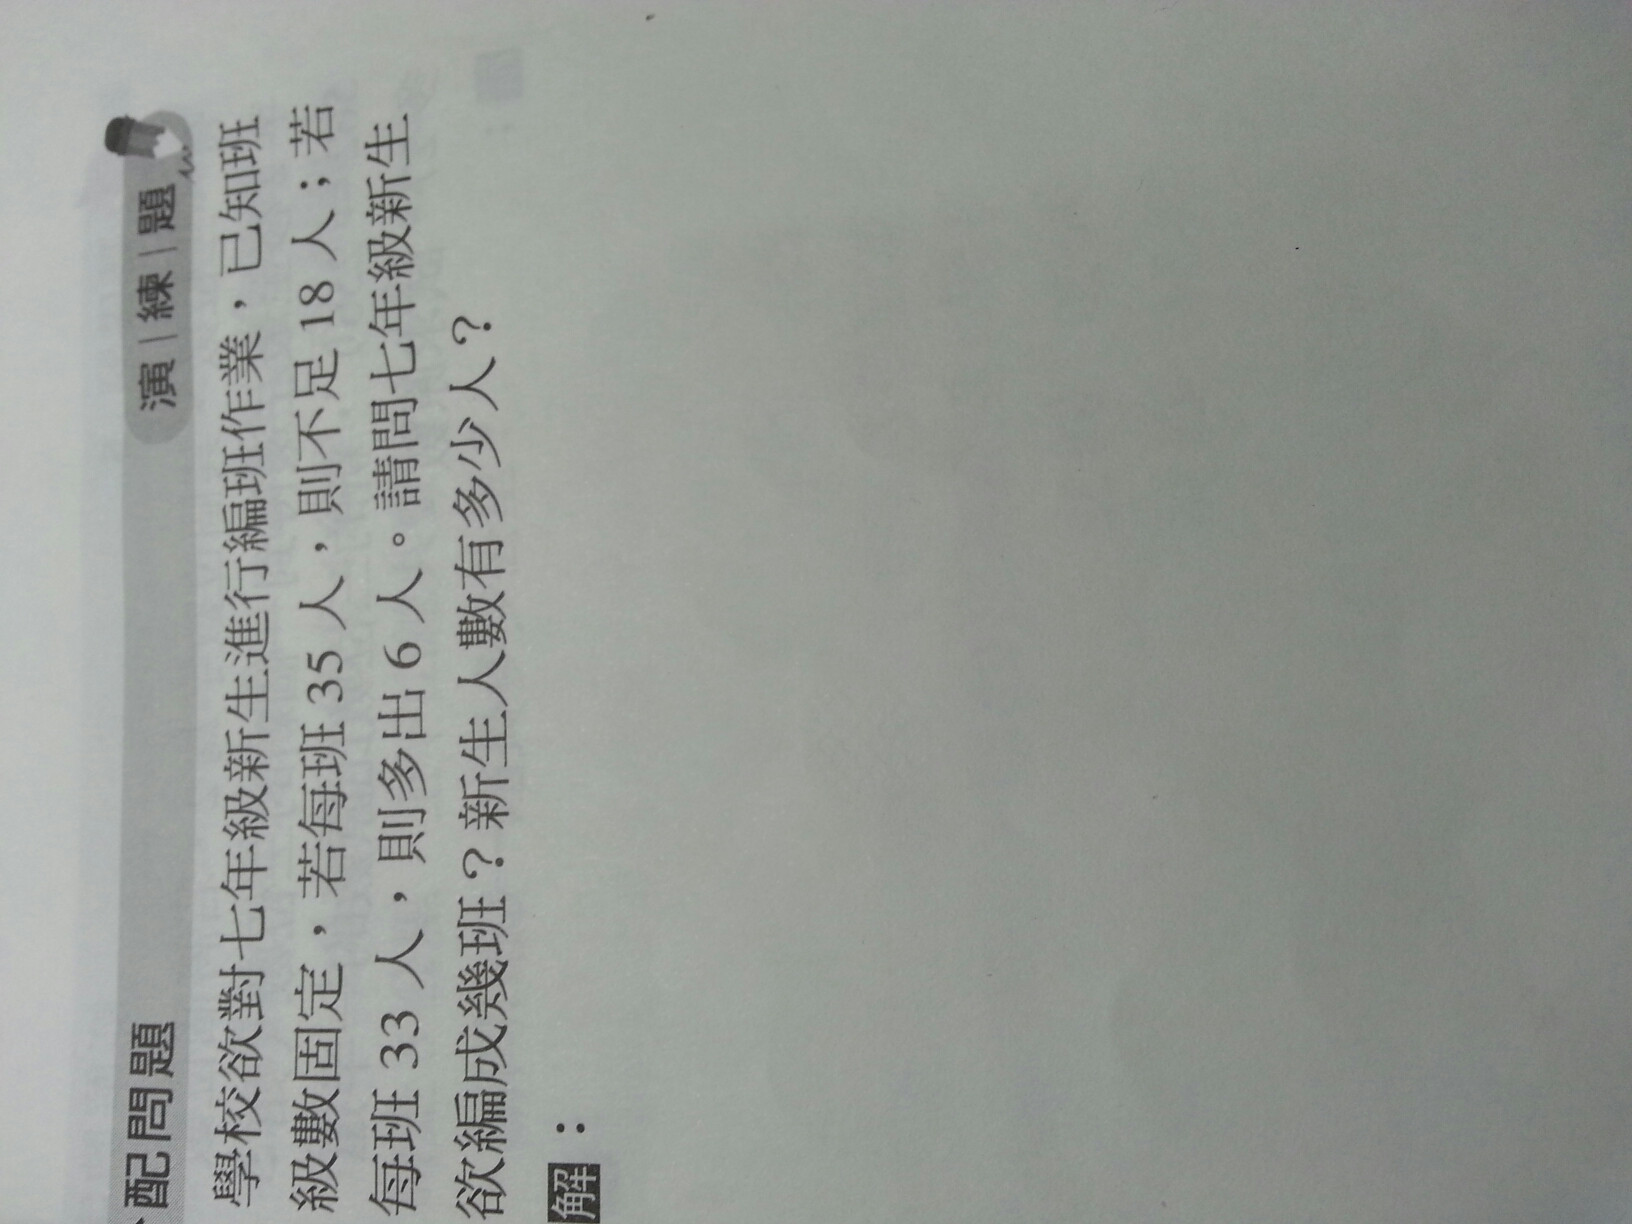 配問題
演|練|題
學校欲對七年級新生進行編班作業，已知班
級數固定，若每班 35 人，則不足 18 人；若
每班 33 人，則多出 6 人。請問七年級新生
欲編成幾班？新生人數有多少人？
解：